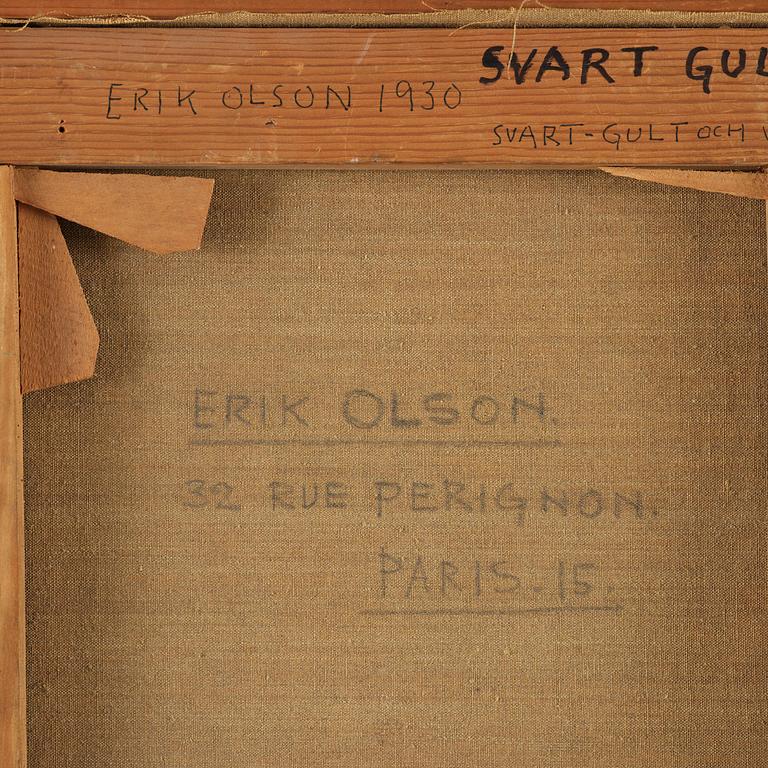 ERIK OLSON 1930
SVART GUL
SVART-GULT OCH
ERIK OLSON.
32 RUE PERIGNON.
PARIS.15.